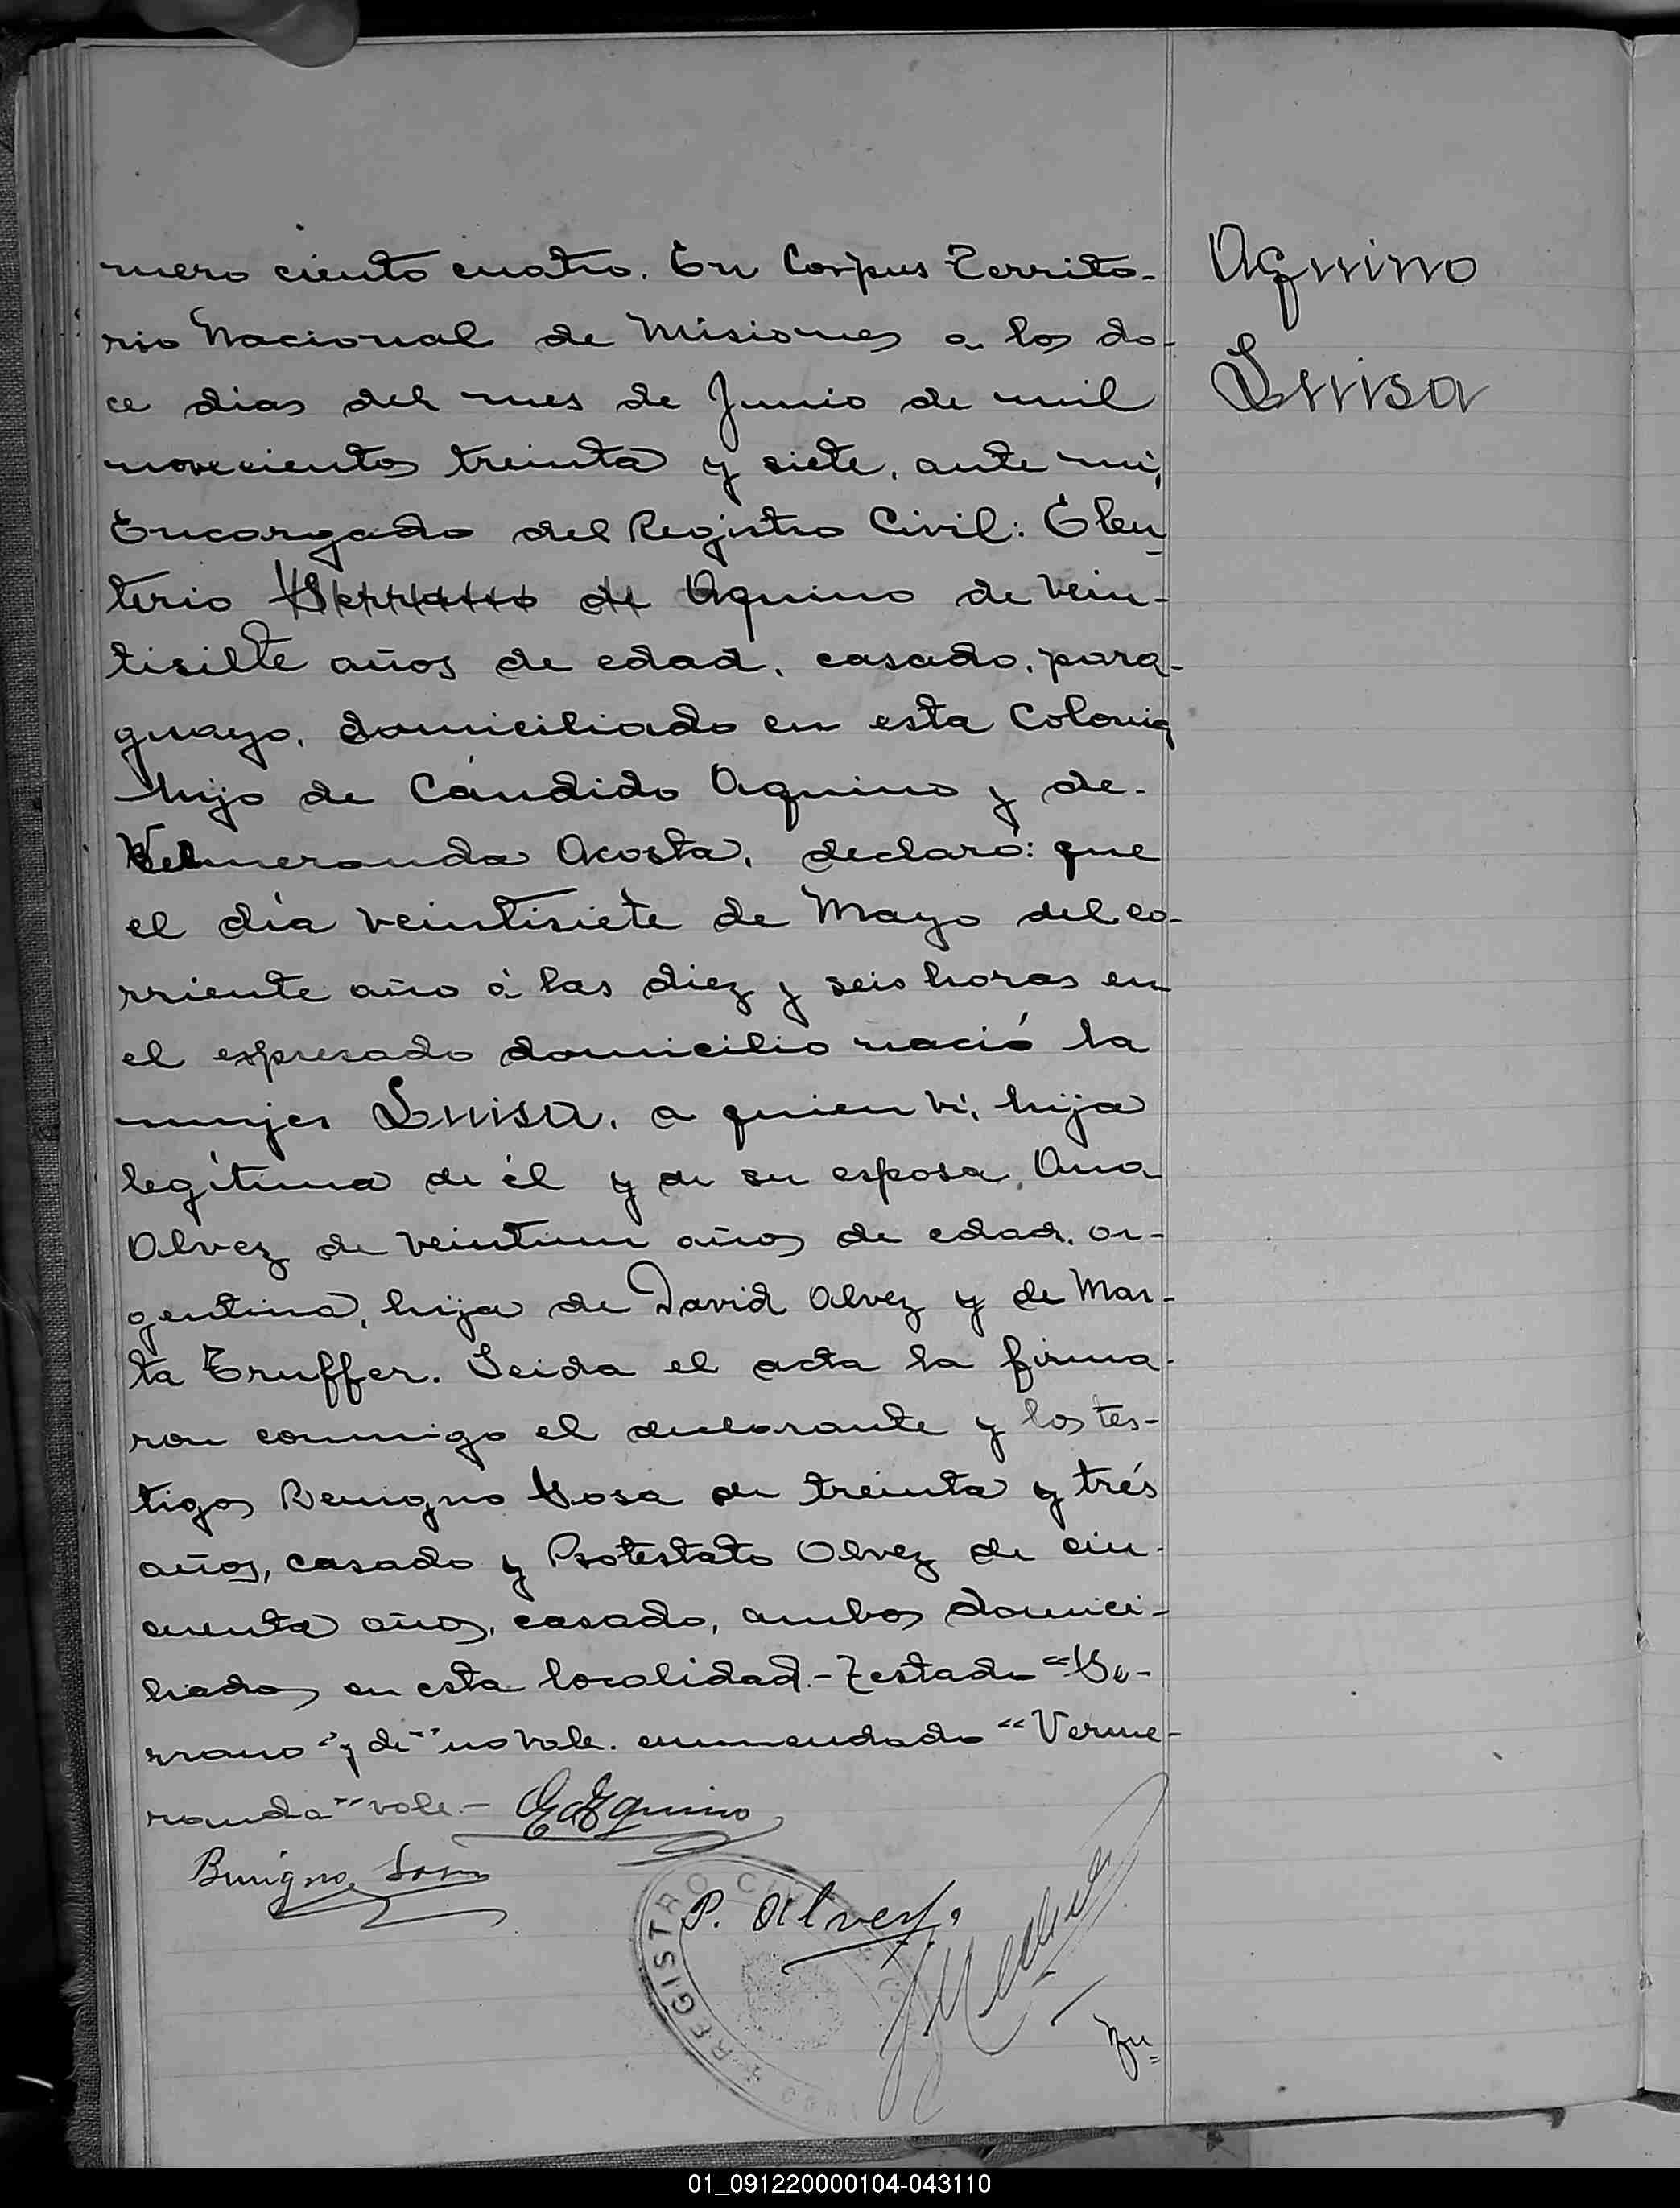 mero ciento cuatro. En Corpus Territo-
rio Nacional de Misiones a los do-
ce dias del mes de Junio de mil
novecientos treinta y siete, ante mi,
Encargado del Registro Civil: Eleu-
terio Serrano de Aquino de vein-
tisiete años de edad, casado, para-
guayo, domiciliado en esta Colonia
hijo de Cándido Aquino y de
Vermeranda Acosta, declaró: que
el día veintisiete de Mayo del co-
rriente año á las diez y seis horas en
el espresado domicilio nació la
mujer Luisa, a quien vi, hija
legítima de él y de su esposa, Ana
Alvez de veintiun años de edad, ar-
gentina, hija de David Alvez y de Mar-
ta Truffer. Leida el acta la firma-
ron conmigo el declarante y los tes-
tigos Benigno Sosa de treinta y trés
años, casado y Protestato Alvez de cin-
cuenta años, casado, ambos domici-
liados en esta localidad.- Testado "Se-
rrano" y "de" no vale. enmendado "Verme-
randa" vale.- E d Aquino
Benigno Sosa
P. Alvez.
Nu=
Aquino
Luisa
REGISTRO CIVIL
01_091220000104-043110